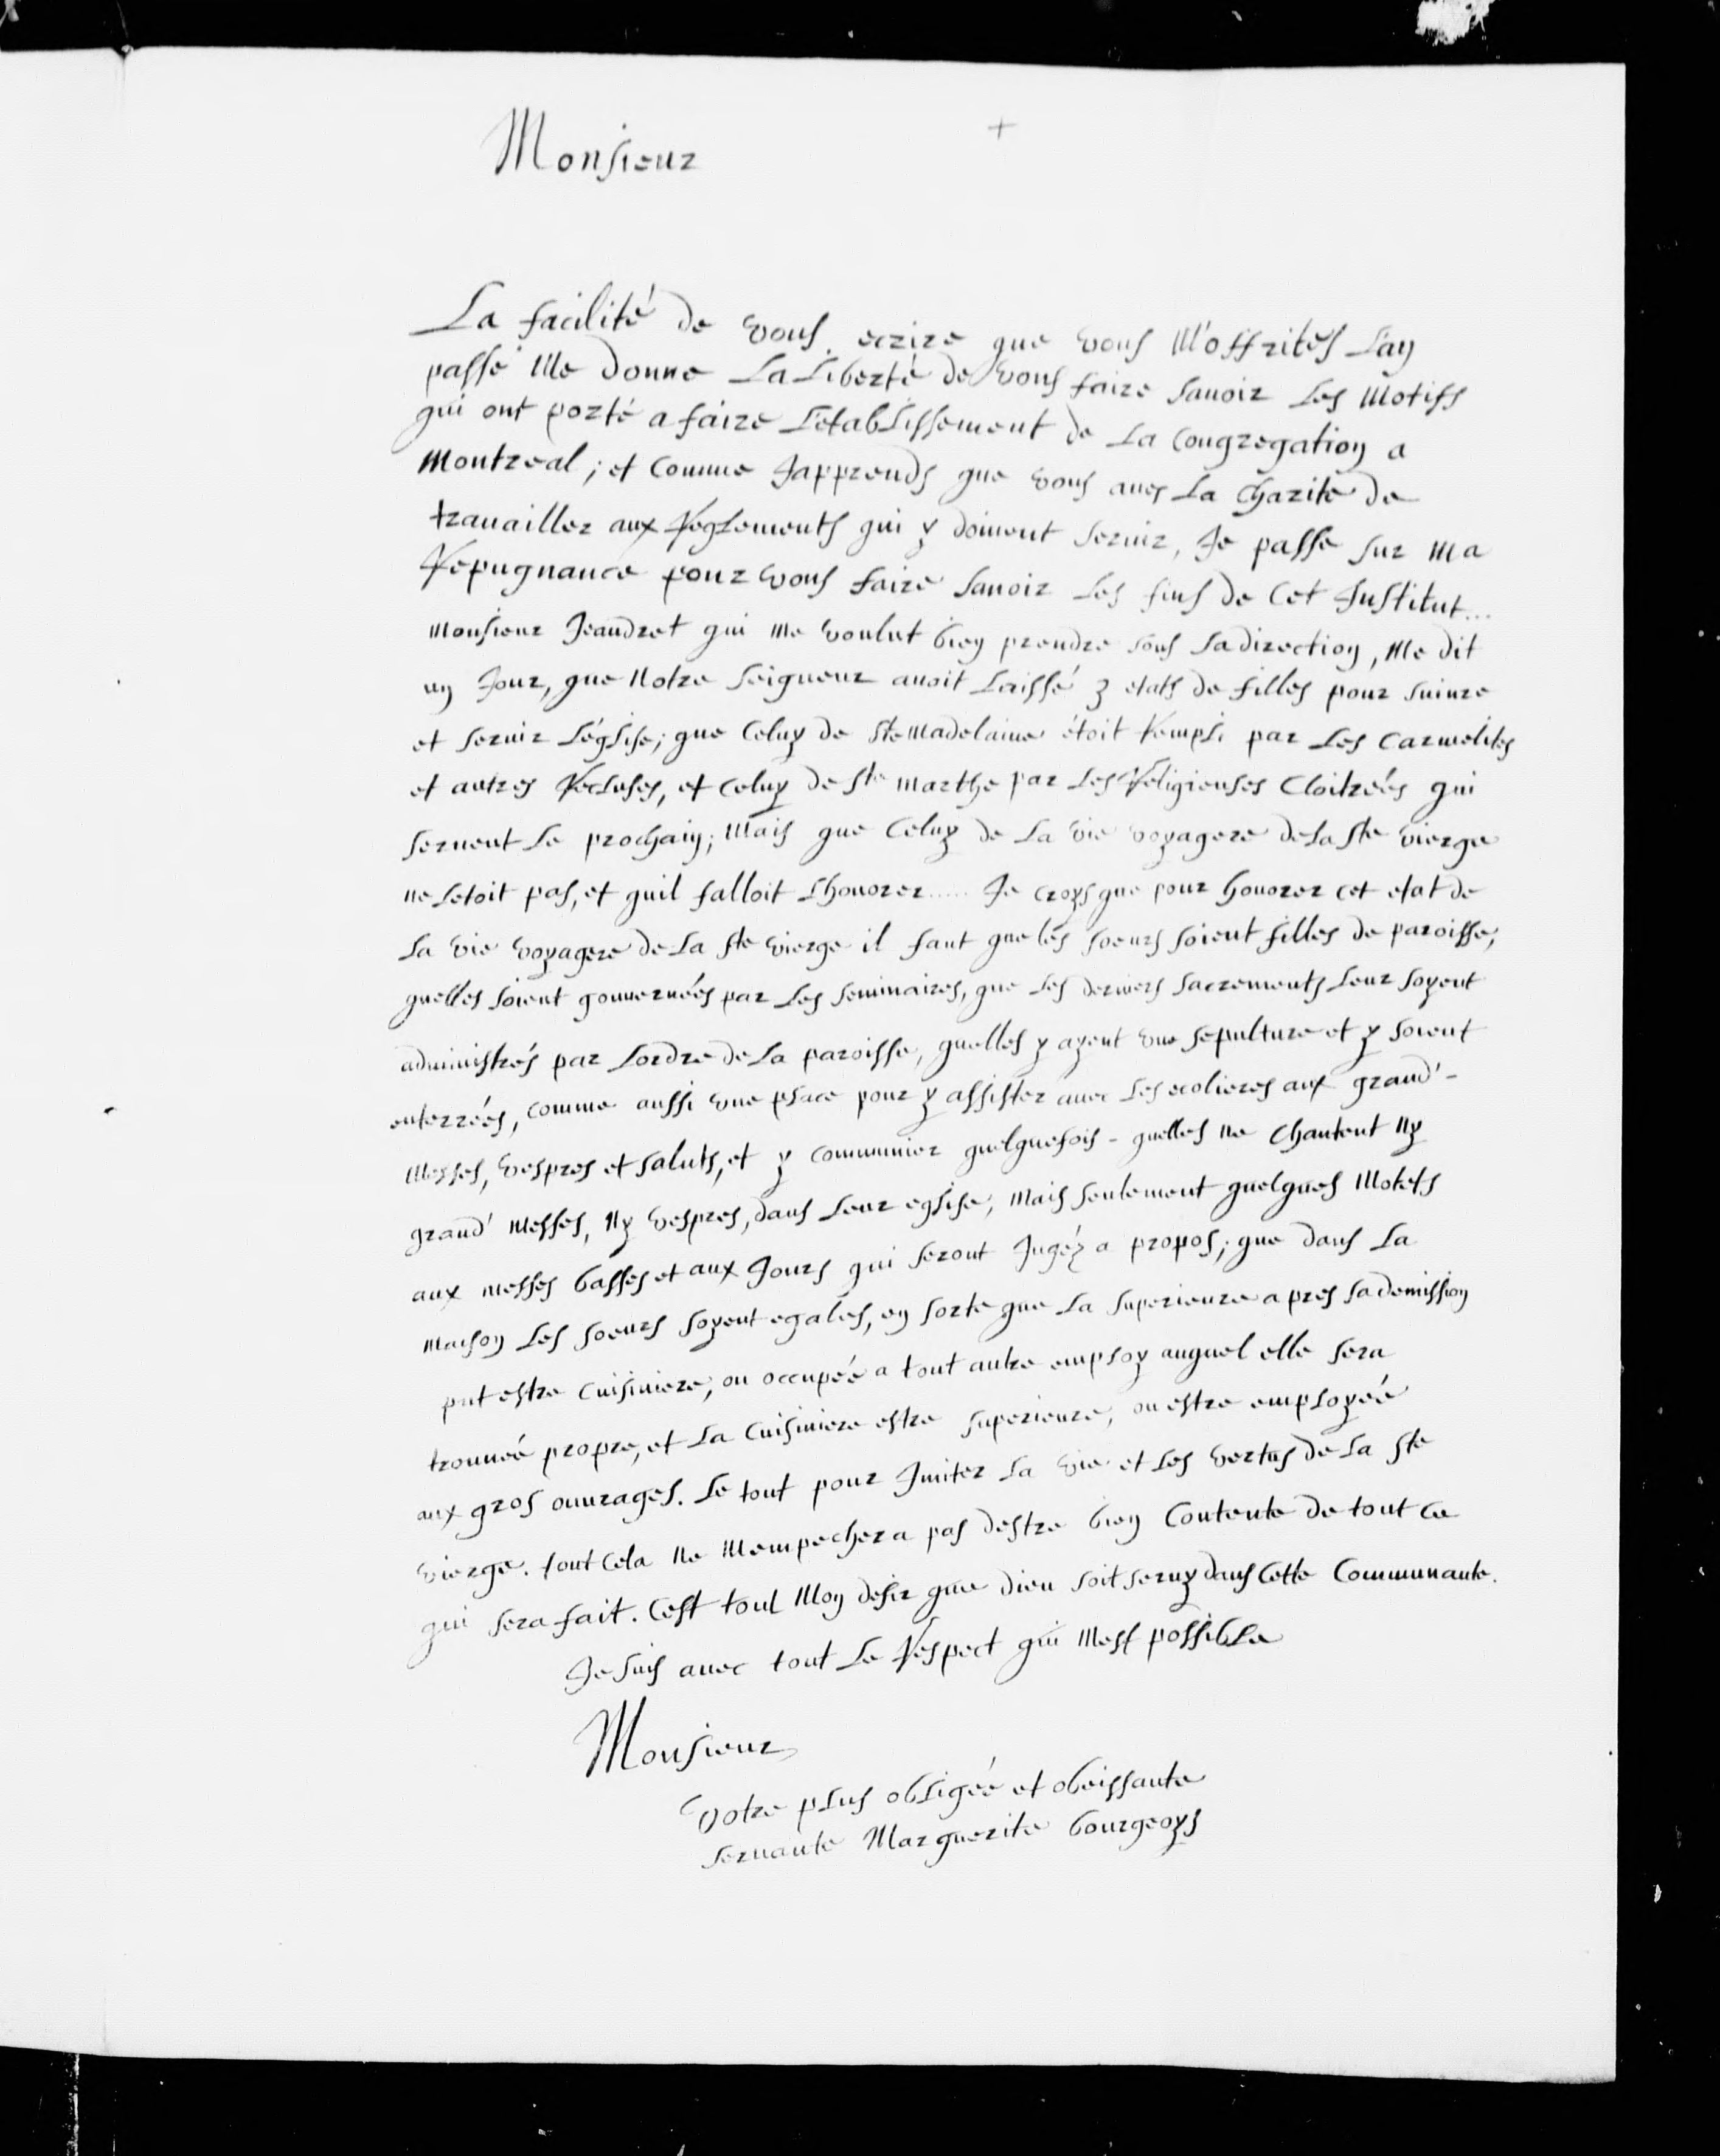 +
Monsieur
La facilité de vous ecrire que vous M'offrites L'an
passé Me donne La Liberté de vous faire sauoir Les Motifs
qui ont porté a faire L'etablissement de La Congregation a
Montreal; et Comme J'apprends que vous aues La Charité de
trauailler aux Reglements qui y doiuent seruir, Je passe sur Ma
Repugnance pour vous faire sauoir Les fins de Cet Institut...
Monsieur Jeandret qui Me voulut bien prendre sous sa direction, Me dit
un Jour, que Notre Seigneur auoit Laissé 3 etats de filles pour suiure
et seruir L'église; que Celuy de Ste Madelaine étoit Rempli par Les Carmelites
et autres Recluses, et Celuy de Ste Marthe par Les Religieuses Cloitrées qui
seruent Le prochain; Mais que Celuy de La vie voyagere de La Ste vierge
ne Letoit pas, et quil falloit Lhonorer..... Je croys que pour honorer cet etat de
La vie voyagere de La Ste vierge il faut que les soeurs soient filles de paroisse,
quelles soient gouuernées par Les Seminaires, que Les derniers Sacrements Leur soyent
administrés par Lordre de La paroisse, quelles y ayent une sepulture et y soient
enterrées, comme aussi une place pour y assister auec Les ecolieres aux grand'-
Messes, vespres et saluts, et y communier quelquefois - quelles Ne Chantent Ny
grand' Messes, Ny vespres, dans Leur eglise; Mais seulement quelques Motets
aux messes basses et aux Jours qui seront Jugéz a propos; que dans La
Maison Les soeurs soyent egales, en sorte que La Superieure apres sa demission
put estre Cuisiniere, ou occupée a tout autre employ auquel elle sera
trouuée propre, et La Cuisiniere estre superieure, ou estre employée
aux gros ouurages. Le tout pour Imiter La vie et Les vertus de La Ste
vierge. tout Cela Ne Mempechera pas destre bien Contente de tout Ce
qui sera fait. Cest tout Mon desir que dieu soit seruy dans Cette Communaute.
Je suis auec tout Le Respect qui Mest possible
Monsieur
Votre plus obligée et obeissante
seruante Marguerite bourgeoys